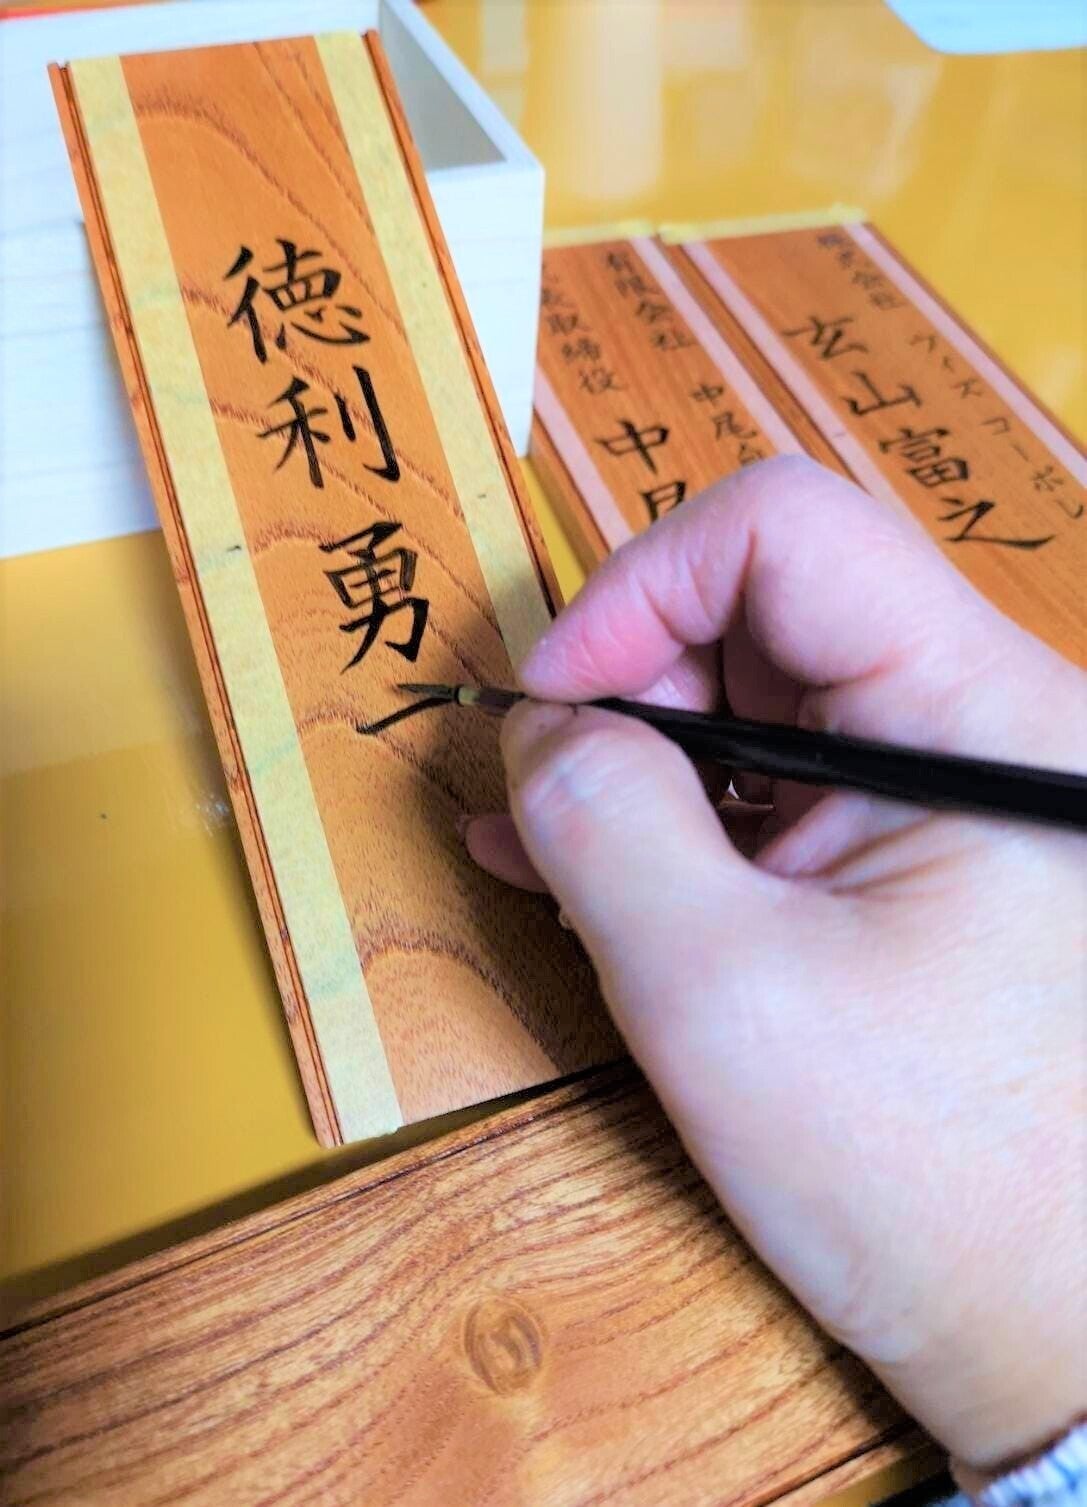 徳利勇
株式会社 ウィズコーポレ
玄山富之
有限会社 中尾
取締役
中